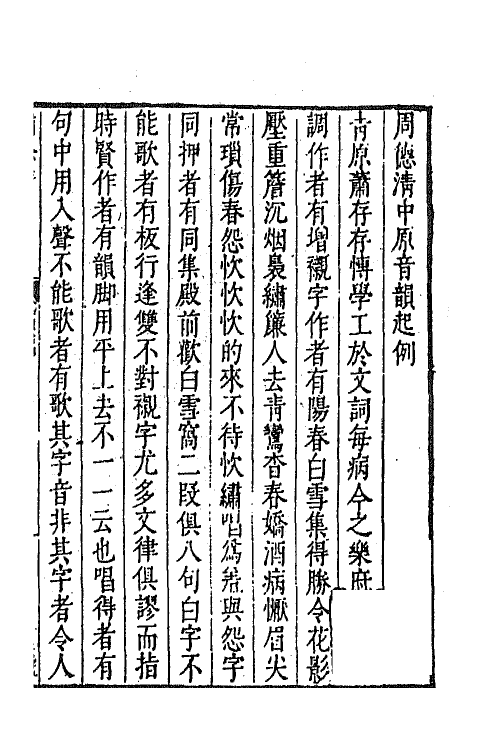 周德清中原音韻起例
青原蕭存存愽學工於文詞每病今之樂府
調作者有增襯字作者有陽春白雪集得勝令花影
壓重簷沉烟裊繡簾人去青鸞杳春嬌酒病懨眉尖
常瑣傷春怨忺忺忺的來不待忺繡唱爲羞與怨字
同押者有同集殿前歡白雪窩二段俱八句白字不
能歌者有板行逢雙不對襯字尤多文律俱謬而指
時賢作者有韻脚用平上去不一一云也唱得者有
句中用入聲不能歌者有歌其字音非其字者令人